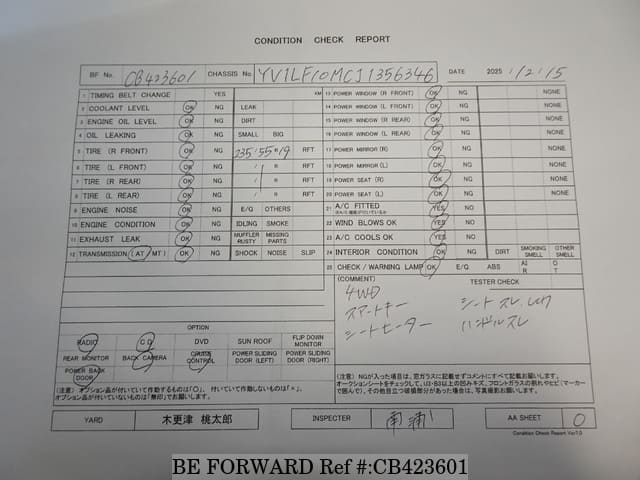 CONDITION CHECK REPORT
BF No. CB423601 CHASSIS No. YV1LF10MCJ1356346 DATE 2025 / 12 / 15
1 TIMING BELT CHANGE YES KM
2 COOLANT LEVEL OK NG LEAK
3 ENGINE OIL LEVEL OK NG DIRT
4 OIL LEAKING OK NG SMALL BIG
5 TIRE (R FRONT) OK NG 235/55R19 RFT
6 TIRE (L FRONT) OK NG / R RFT
7 TIRE (R REAR) OK NG / R RFT
8 TIRE (L REAR) OK NG / R RFT
9 ENGINE NOISE OK NG E/Q OTHERS
10 ENGINE CONDITION OK NG IDLING SMOKE
11 EXHAUST LEAK OK NG MUFFLER RUSTY MISSING PARTS
12 TRANSMISSION (AT/MT) OK NG SHOCK NOISE SLIP
13 POWER WINDOW (R FRONT) OK NG NONE
14 POWER WINDOW (L FRONT) OK NG NONE
15 POWER WINDOW (R REAR) OK NG NONE
16 POWER WINDOW (L REAR) OK NG NONE
17 POWER MIRROR (R) OK NG NONE
18 POWER MIRROR (L) OK NG NONE
19 POWER SEAT (R) OK NG NONE
20 POWER SEAT (L) OK NG NONE
21 A/C FITTED YES NO
22 WIND BLOWS OK YES NO
23 A/C COOLS OK YES NO
24 INTERIOR CONDITION OK NG DIRT SMOKING SMELL OTHER SMELL
25 CHECK / WARNING LAMP OK E/Q ABS AI R O T
(COMMENT) TESTER CHECK
4WD
スマートキー シートスレ
シートヒーター ハンドルスレ
OPTION
RADIO CD DVD SUN ROOF FLIP DOWN MONITOR
REAR MONITOR BACK CAMERA CRUISE CONTROL POWER SLIDING DOOR (LEFT) POWER SLIDING DOOR (RIGHT)
POWER BACK DOOR
(注意) オプション品が付いていて作動するものは「○」、付いていて作動しないものは「×」、
オプション品が付いていないものは「無印」でお願いします。
(注意) NGが入った項目は、窓ガラスに記載せずコメントにすべて記載お願いします。
オークションシートをチェックして、U3・B3以上の凹みキズ、フロントガラスの割れやヒビ(マーカー
で囲んで)、その他目立つ破損部分があった場合は、写真撮影お願いします。
YARD 木更津 桃太郎 INSPECTER 南浦 AA SHEET 0
Condition Check Report Ver7.0
BE FORWARD Ref #:CB423601